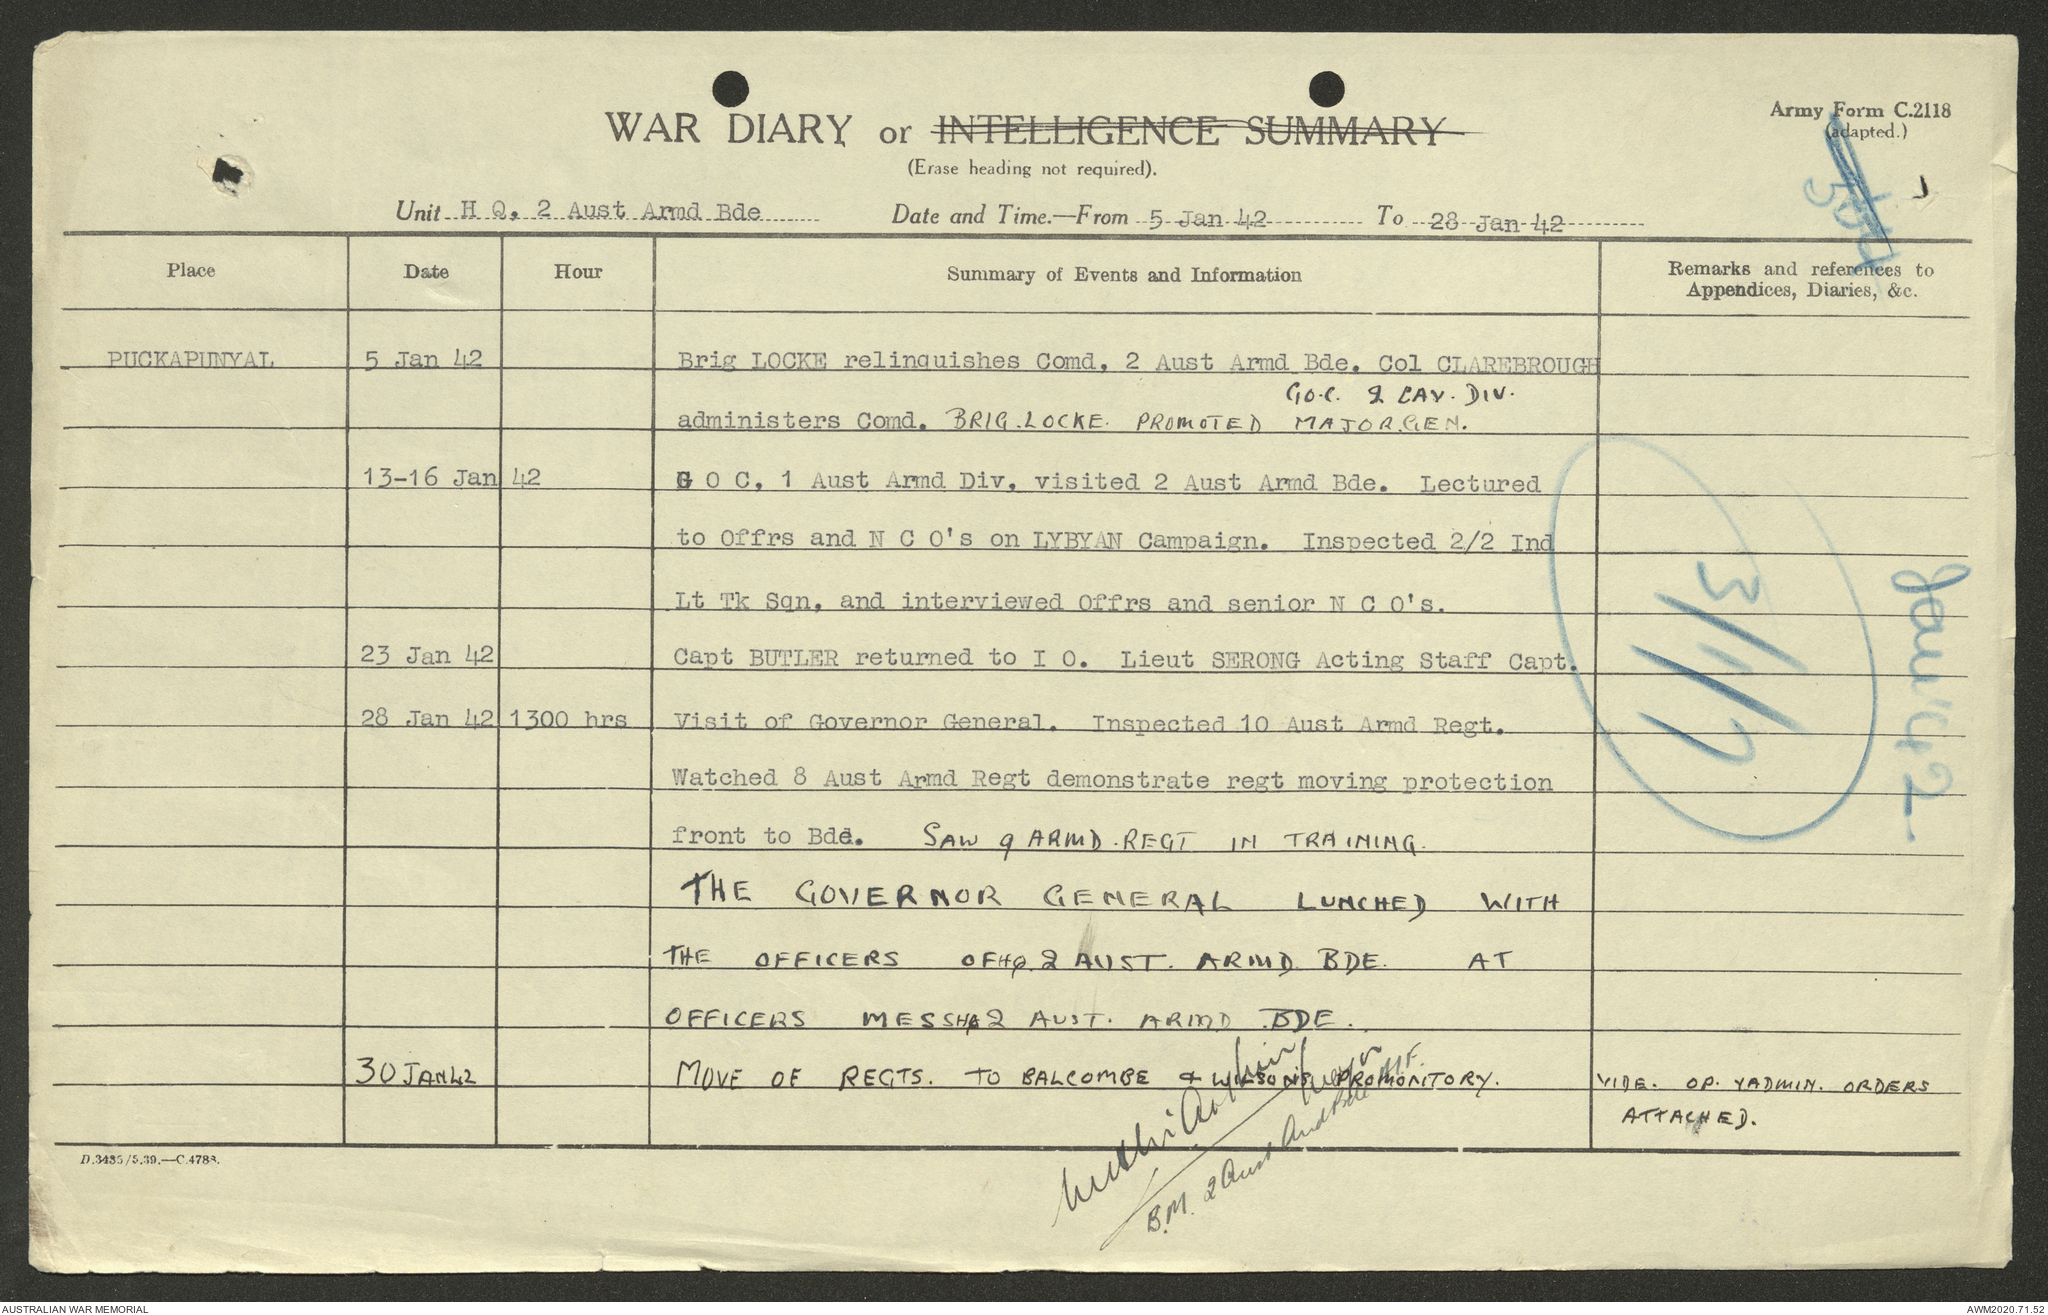 Army Form C.2118
(adapted.)
WAR DIARY or INTELLIGENCE SUMMARY
(Erase heading not required).
Unit H Q, 2 Aust Armd Bde Date and Time.—From 5 Jan 42 To 28 Jan 42
Place Date Hour Summary of Events and Information Remarks and references to
Appendices, Diaries, &c.
PUCKAPUNYAL 5 Jan 42 Brig LOCKE relinquishes Comd, 2 Aust Armd Bde. Col CLAREBROUGH
G.O.C. 2 CAV. DIV.
administers Comd. BRIG. LOCKE. PROMOTED MAJOR.GEN.
13-16 Jan 42 G O C, 1 Aust Armd Div, visited 2 Aust Armd Bde. Lectured
to Offrs and N C O's on LYBYAN Campaign. Inspected 2/2 Ind
Lt Tk Sqn, and interviewed Offrs and senior N C O's.
23 Jan 42 Capt BUTLER returned to I O. Lieut SERONG Acting Staff Capt.
28 Jan 42 1300 hrs Visit of Governor General. Inspected 10 Aust Armd Regt.
Watched 8 Aust Armd Regt demonstrate regt moving protection
front to Bde. SAW 9 ARMD. REGT IN TRAINING.
THE GOVERNOR GENERAL LUNCHED WITH
THE OFFICERS OF HQ 2 AUST. ARMD BDE. AT
OFFICERS MESS HQ 2 AUST. ARMD BDE.
30 JAN 42 MOVE OF REGTS. TO BALCOMBE & WILSON'S PROMONITORY. VIDE. OP. & ADMIN. ORDERS
ATTACHED.
3/1/7
Jan '42
Major
B.M. 2 Aust Armd Bde A.I.F.
D.3435/5.39.—C.4788.
AUSTRALIAN WAR MEMORIAL
AWM2020.71.52